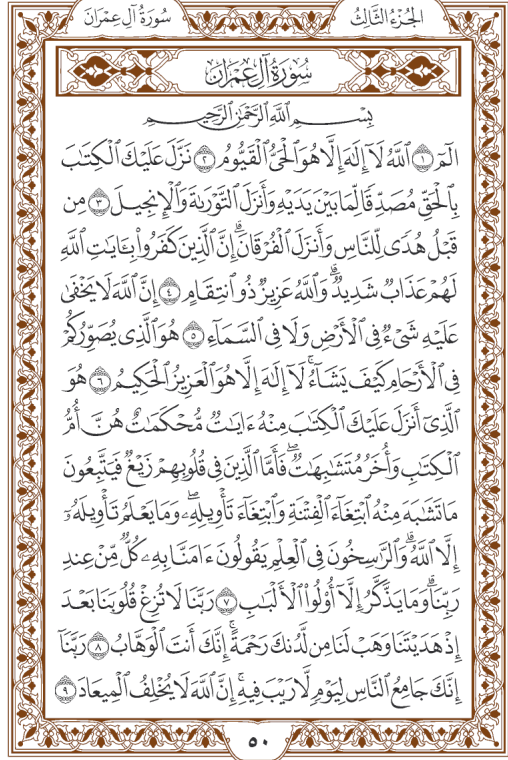 سُورَةُ آلِ عِمْرَانَ
الجُزْءُ الثَّالِثُ
سُورَةُ آلِ عِمْرَانَ
بِسْمِ ٱللَّهِ ٱلرَّحْمَٰنِ ٱلرَّحِيمِ
الٓمٓ ١ ٱللَّهُ لَآ إِلَٰهَ إِلَّا هُوَ ٱلْحَىُّ ٱلْقَيُّومُ ٢ نَزَّلَ عَلَيْكَ ٱلْكِتَٰبَ
بِٱلْحَقِّ مُصَدِّقًا لِّمَا بَيْنَ يَدَيْهِ وَأَنزَلَ ٱلتَّوْرَىٰةَ وَٱلْإِنجِيلَ ٣ مِن
قَبْلُ هُدًى لِّلنَّاسِ وَأَنزَلَ ٱلْفُرْقَانَۗ إِنَّ ٱلَّذِينَ كَفَرُوا۟ بِـَٔايَٰتِ ٱللَّهِ
لَهُمْ عَذَابٌ شَدِيدٌۗ وَٱللَّهُ عَزِيزٌ ذُو ٱنتِقَامٍ ٤ إِنَّ ٱللَّهَ لَا يَخْفَىٰ
عَلَيْهِ شَىْءٌ فِى ٱلْأَرْضِ وَلَا فِى ٱلسَّمَآءِ ٥ هُوَ ٱلَّذِى يُصَوِّرُكُمْ
فِى ٱلْأَرْحَامِ كَيْفَ يَشَآءُۚ لَآ إِلَٰهَ إِلَّا هُوَ ٱلْعَزِيزُ ٱلْحَكِيمُ ٦ هُوَ
ٱلَّذِىٓ أَنزَلَ عَلَيْكَ ٱلْكِتَٰبَ مِنْهُ ءَايَٰتٌ مُّحْكَمَٰتٌ هُنَّ أُمُّ
ٱلْكِتَٰبِ وَأُخَرُ مُتَشَٰبِهَٰتٌۖ فَأَمَّا ٱلَّذِينَ فِى قُلُوبِهِمْ زَيْغٌ فَيَتَّبِعُونَ
مَا تَشَٰبَهَ مِنْهُ ٱبْتِغَآءَ ٱلْفِتْنَةِ وَٱبْتِغَآءَ تَأْوِيلِهِۦۖ وَمَا يَعْلَمُ تَأْوِيلَهُۥٓ
إِلَّا ٱللَّهُۗ وَٱلرَّٰسِخُونَ فِى ٱلْعِلْمِ يَقُولُونَ ءَامَنَّا بِهِۦ كُلٌّ مِّنْ عِندِ
رَبِّنَاۗ وَمَا يَذَّكَّرُ إِلَّآ أُو۟لُوا۟ ٱلْأَلْبَٰبِ ٧ رَبَّنَا لَا تُزِغْ قُلُوبَنَا بَعْدَ
إِذْ هَدَيْتَنَا وَهَبْ لَنَا مِن لَّدُنكَ رَحْمَةًۚ إِنَّكَ أَنتَ ٱلْوَهَّابُ ٨ رَبَّنَآ
إِنَّكَ جَامِعُ ٱلنَّاسِ لِيَوْمٍ لَّا رَيْبَ فِيهِۚ إِنَّ ٱللَّهَ لَا يُخْلِفُ ٱلْمِيعَادَ ٩
٥٠